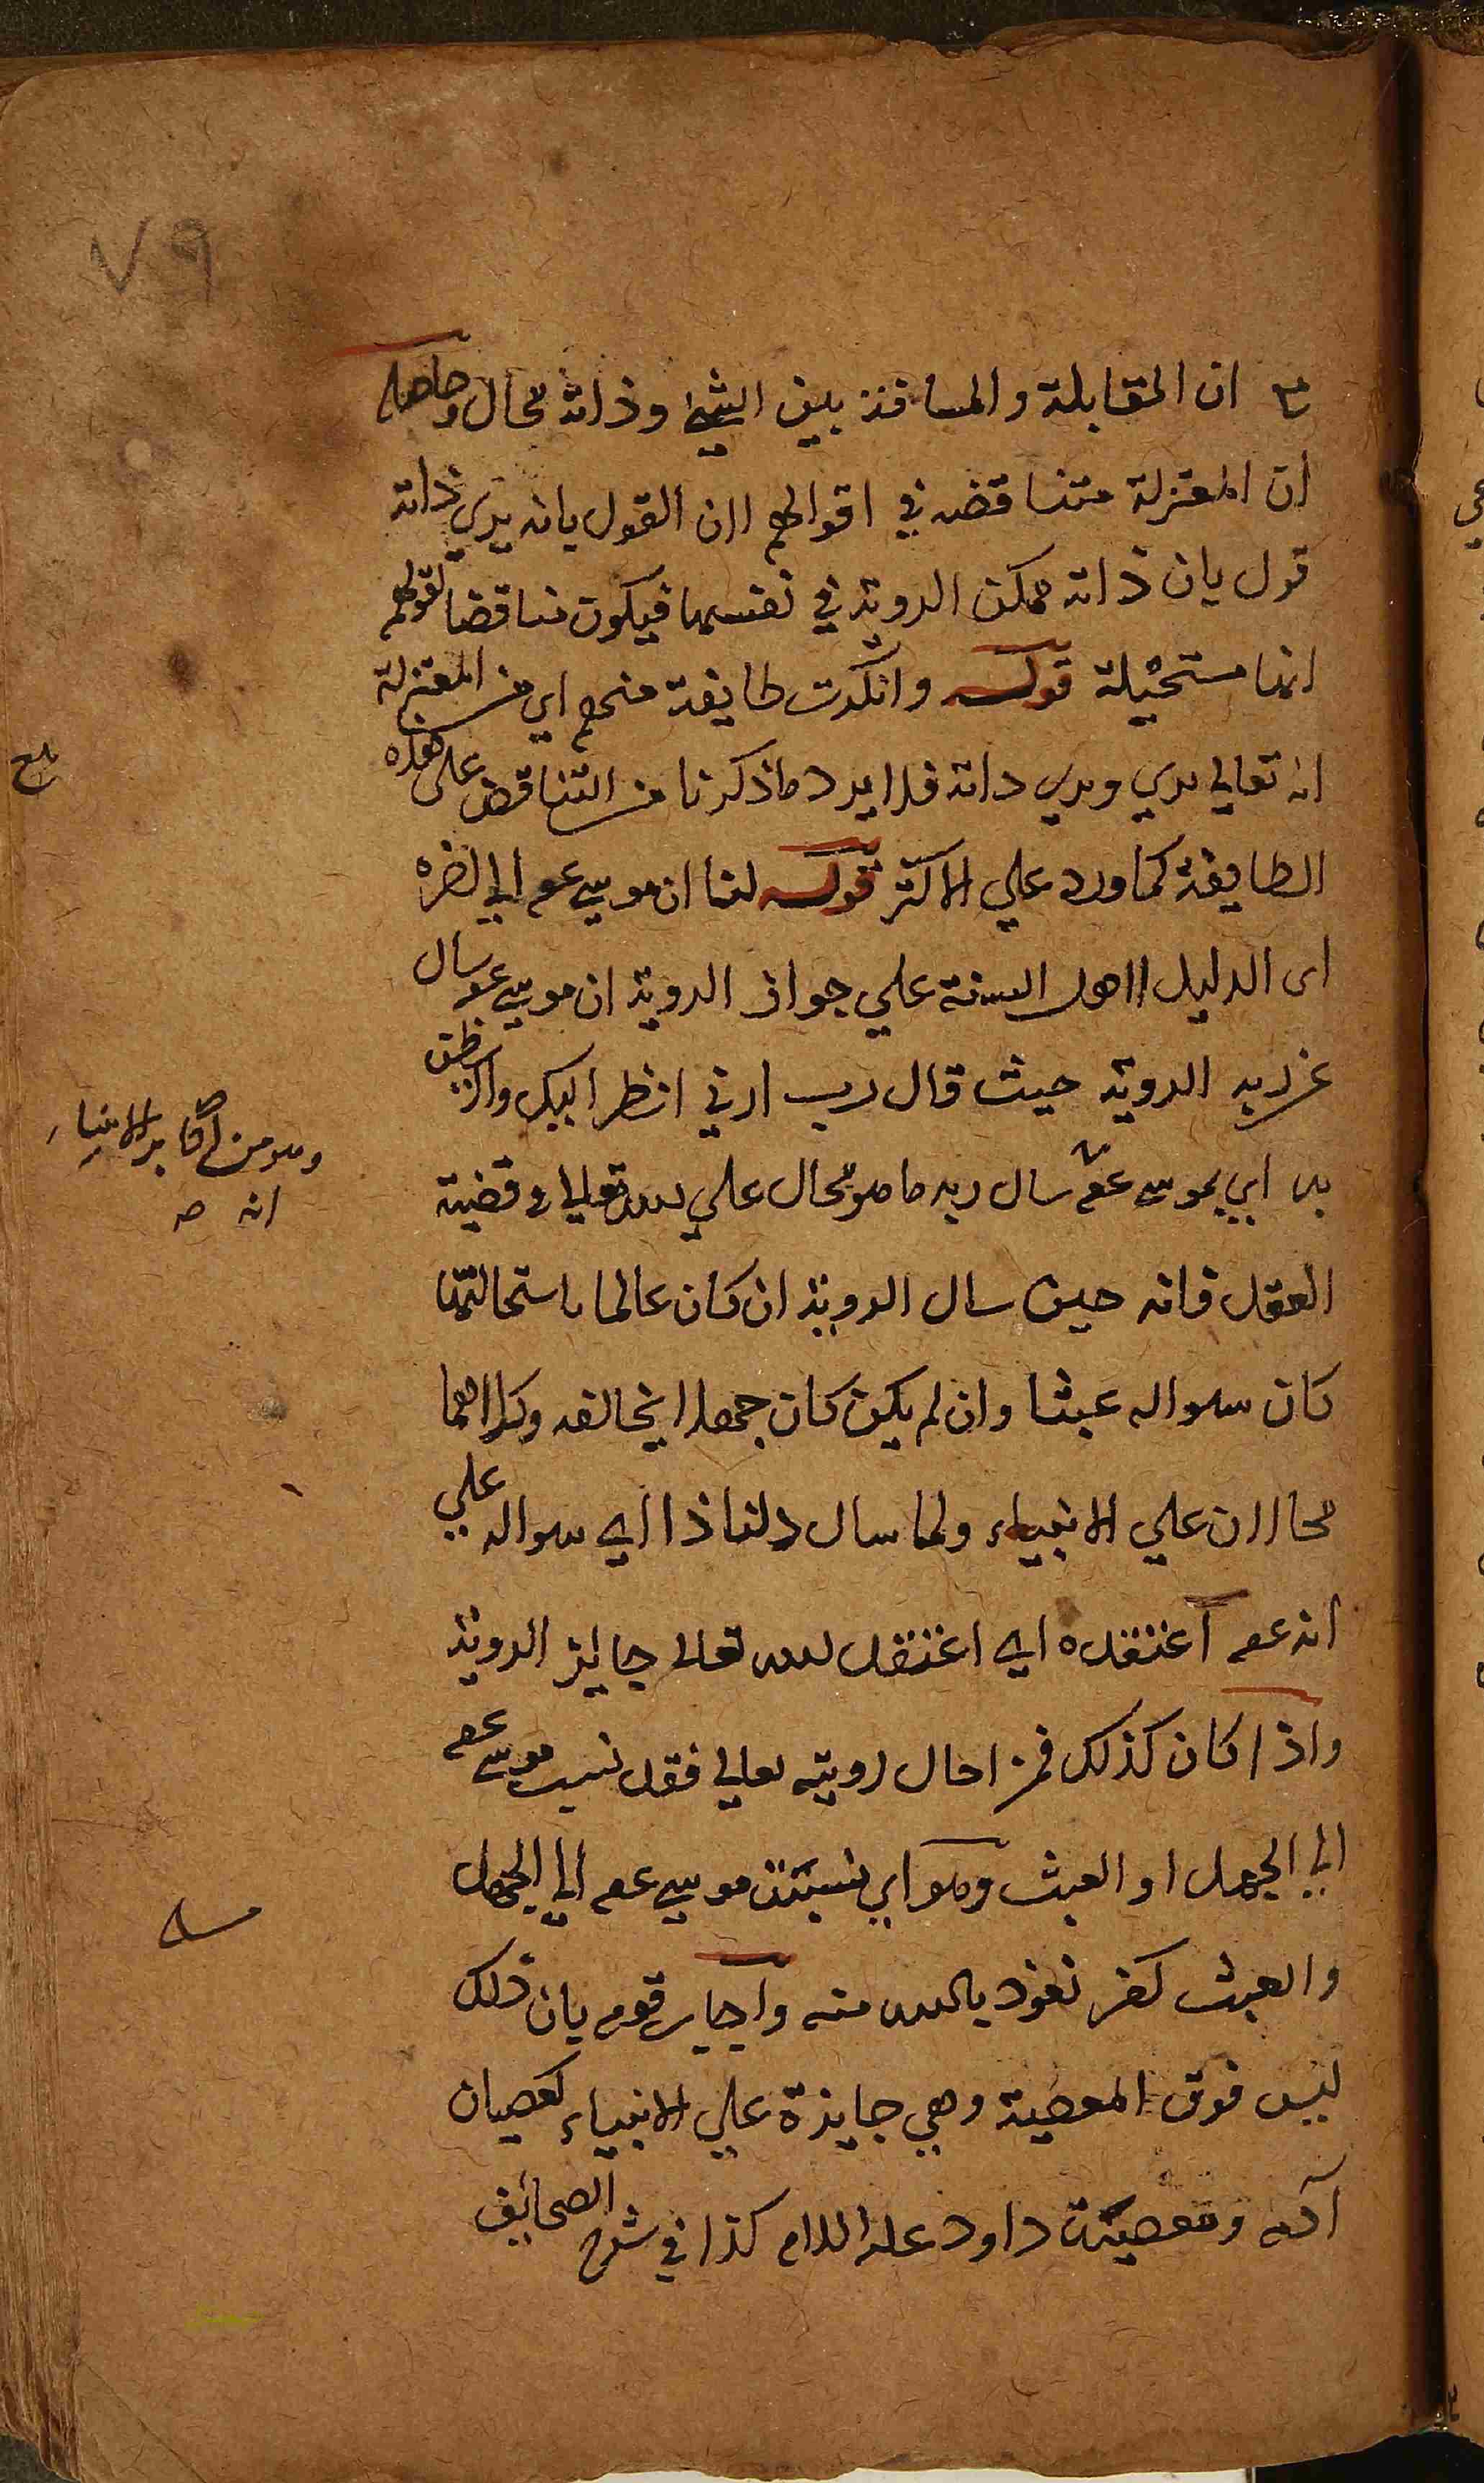 ٧٩
ان المقابلة والمسافة بين الشيئ وذاته محال وحاصله
ان المعتزلة متناقضه في اقوالهم لان القول بانه يري ذاته
قول بان ذاته ممكن الروية في نفسها فيكون مناقضا لقولهم
انها مستحيلة قوله وانكرت طايفة منهم اي من المعتزلة
انه تعالي يري ويري ذاته فلا يرد ما ذكرنا من التناقض علي هذه
الطايفة كما ورد علي الاكثر قوله لنا ان موسي عم الي اخره
اي الدليل لاهل السنة علي جواز الروية ان موسي عم سال
عن ربه الروية حيث قال رب ارني انظر اليك ولا يظن
به اي بموسي عم سال ربه ما هو محال علي الله تعالي في قضية
العقل فانه حين سال الروية ان كان عالما باستحالتها
كان سواله عبثا وان لم يكن كان جهلا بخالقه وكلاهما
محالان علي الانبياء ولما سال دلنا ذا اي سواله علي
انه عم اعتقده اي اعتقد الله تعالي جايز الروية
واذا كان كذلك فمن احال رويته تعالي فقد نسب موسي عم
الي الجهل او العبث وهو اي نسبة موسي عم الي الجهل
والعبث كفر نعوذ بالله منه واجاب قوم بان ذلك
ليس فوق المعصية وهي جايزة علي الانبياء كعصيان
آدم ومعصية داود عليه السلام كذا في شرح الصحائف
وهو من اكابر الانبياء
انه صح